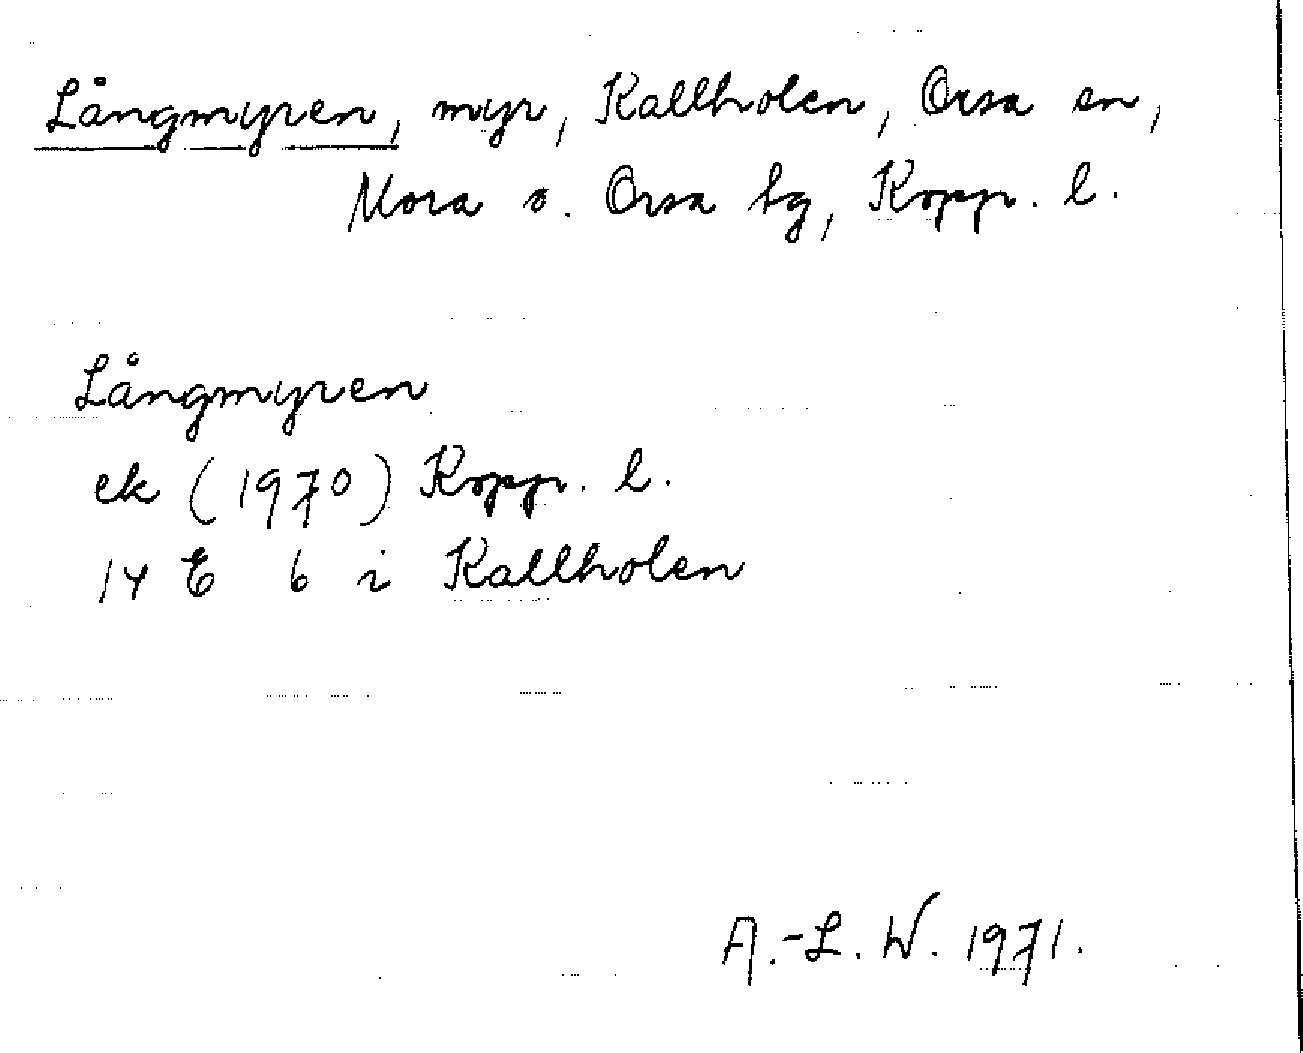 Långmyren, myr, Kallholen, Orsa sn,
Mora o. Orsa tg, Kopp. l.
Långmyren
ek (1970) Kopp. l.
14 E 6 i Kallholen
A.-L. W. 1971.